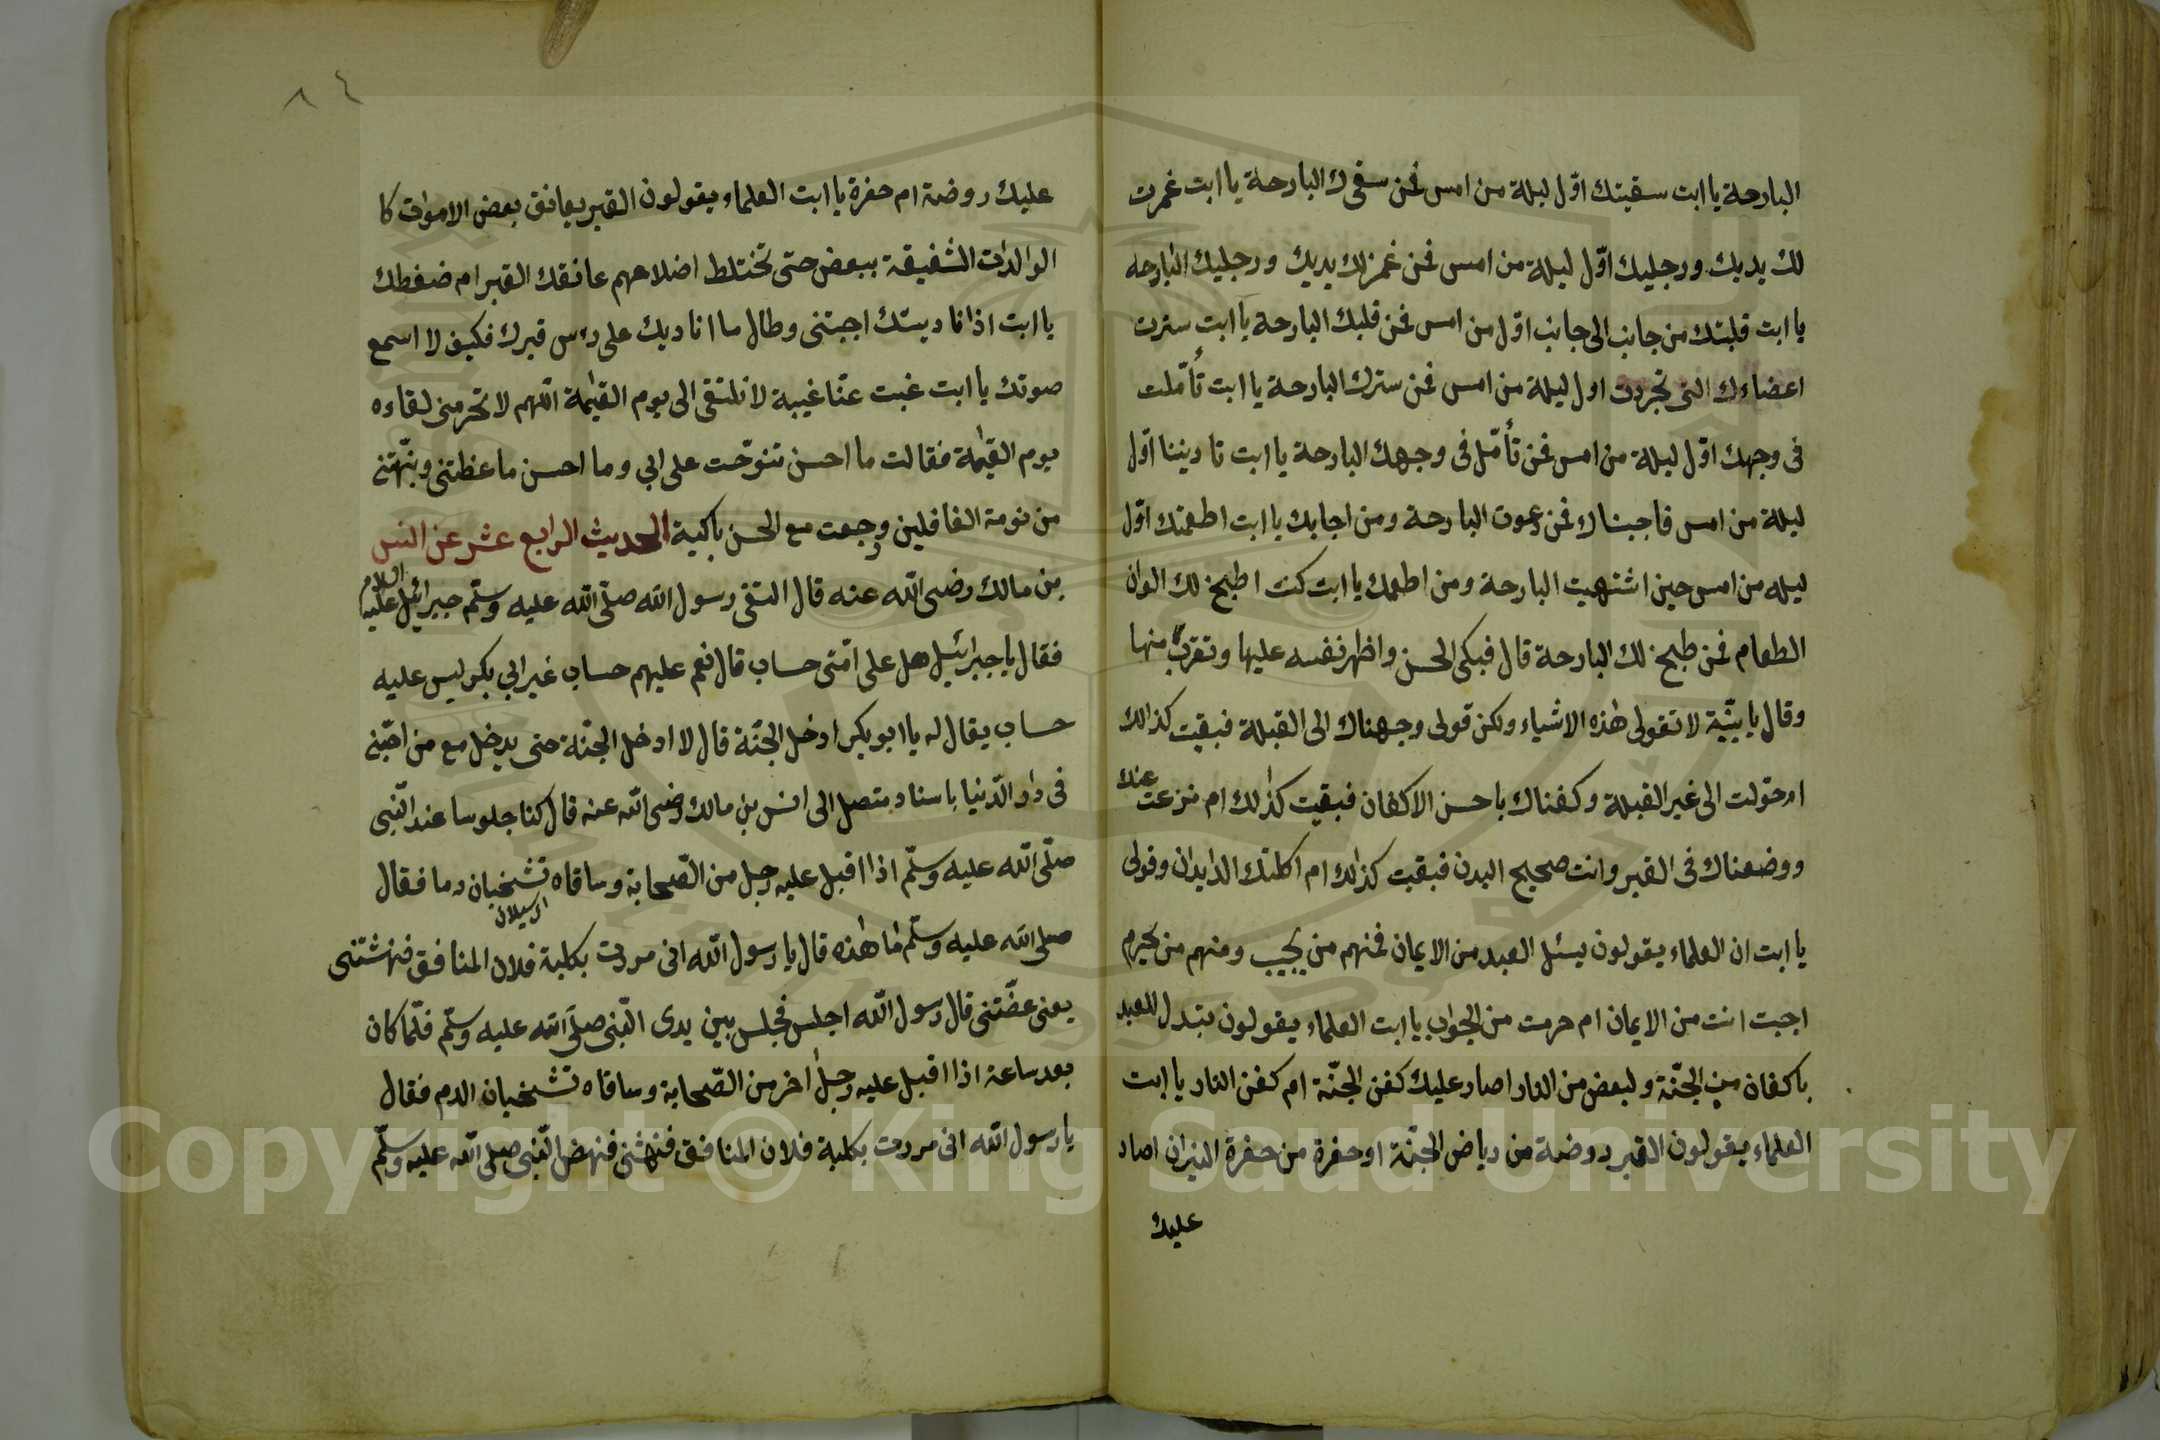 البارحة يا ابت سقيتك اوّل ليلة من امس فمن سقىك البارحة يا ابت غمرت
لك يديك ورجليك اوّل ليلة من امس فمن غمز لك يديك ورجليك البارحه
يا ابت قلبتك من جانب الى جانب اوّل من امس فمن قلبك البارحة يا ابت سترت
اعضاءك التى تجردت اول ليلة من امس فمن سترك البارحة يا ابت تأمّلت
فى وجهك اوّل ليلة من امس فمن تأمّل فى وجهك البارحة يا ابت ناديتنا اوّل
ليلة من امس فاجبناك فمن دعوت البارحة ومن اجابك يا ابت اطعمتك اوّل
ليله من امس حين اشتهيت البارحة ومن اطعمك يا ابت كنت اطبخ لك الوان
الطعام فمن طبخ لك البارحة قال فبكى الحسن واظهر نفسه عليها وتقرب منها
وقال يا بنيّة لا تقولى هٰذه الاشياء ولكن قولى وجهناك الى القبلة فبقيت كذالك
ام حوّلت الى غير القبلة وكفناك باحسن الاكفان فبقيت كذٰلك ام نزعت عنك
ووضعناك فى القبر وانت صحيح البدن فبقيت كذٰلك ام اكلتك الدايدان وقولى
يا ابت ان العلماء يقولون يسئل العبد من الايمان فمنهم من يجيب ومنهم من يحرم
اجبت انت من الايمان ام حرمت من الجواب يا ابت العلماء يقولون تبدل للعبد
باكفان من الجنّة ولبعض من النار اصار عليك كفن الجنّة ام كفن النار يا ابت
العلماء يقولون القبر روضة من رياض الجنّة او حفرة من حفرة النيران اصار
عليك
٨٤
عليك روضة ام حفرة يا ابت العلماء يقولون القبر يعانق بعض الاموات كا
الوالدات الشفيقة ببعض حتى تختلط اضلاعهم عانقك القبر ام ضغطك
يا ابت اذا ناديتك اجبتنى وطال ما اناديك على رءس قبرك فكيف لا اسمع
صوتك يا ابت غبت عنّا غيبة لا نلتقى الى يوم القيٰمة اللّهم لا تحرمنى لقاءه
يوم القيٰمة فقالت ما احسن تنوّحت على ابي وما احسن ما عظتنى ونبّهتنى
من نومة الغافلين ورجعت مع الحسن باكية الحديث الرابع عشر عن انس
بن مالك رضى اللّه عنه قال التقى رسول اللّه صلّى اللّه عليه وسلّم جبرائيل عليه السلام
فقال يا جبرائيل هل على امّتى حساب قال نعم عليهم حساب غير ابي بكر ليس عليه
حساب يقال له يا ابو بكر ادخل الجنّة قال لا ادخل الجنّة حتى يدخل مع من احبّنى
فى دار الدّنيا باسناد متصل الى انس بن مالك رضى اللّه عنه قال كنا جلوسا عند النّبى
صلّى اللّه عليه وسلّم اذا اقبل عليه رجل من الصّحابة وساقاه تشخبان دما فقال
اى سيلان
صلى اللّه عليه وسلّم ما هٰذه قال يا رسول اللّه انى مررت بكلبة فلان المنافق فنهشتنى
يعنى عضّتنى قال رسول اللّه اجلس فجلس بين يدى النّبى صلّى اللّه عليه وسلّم فلمّا كان
بعد ساعة اذا اقبل عليه رجل اخر من الصّحابة وساقاه تشخبان الدم فقال
يا رسول اللّه انى مررت بكلبة فلان المنافق فنهشتنى فنهض النّبى صلى اللّه عليه وسلّم
Copyright © King Saud University